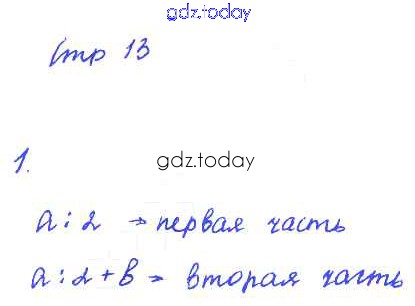 gdz.today
Стр 13
1.
gdz.today
a : 2 → первая часть
a : 2 + b → вторая часть